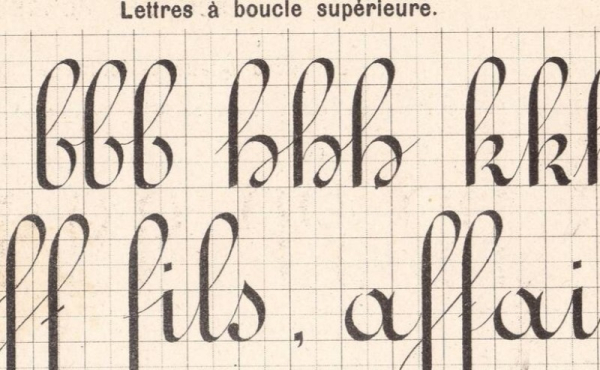 Lettres à boucle supérieure.
bbb hhh kk
ff fils, affai